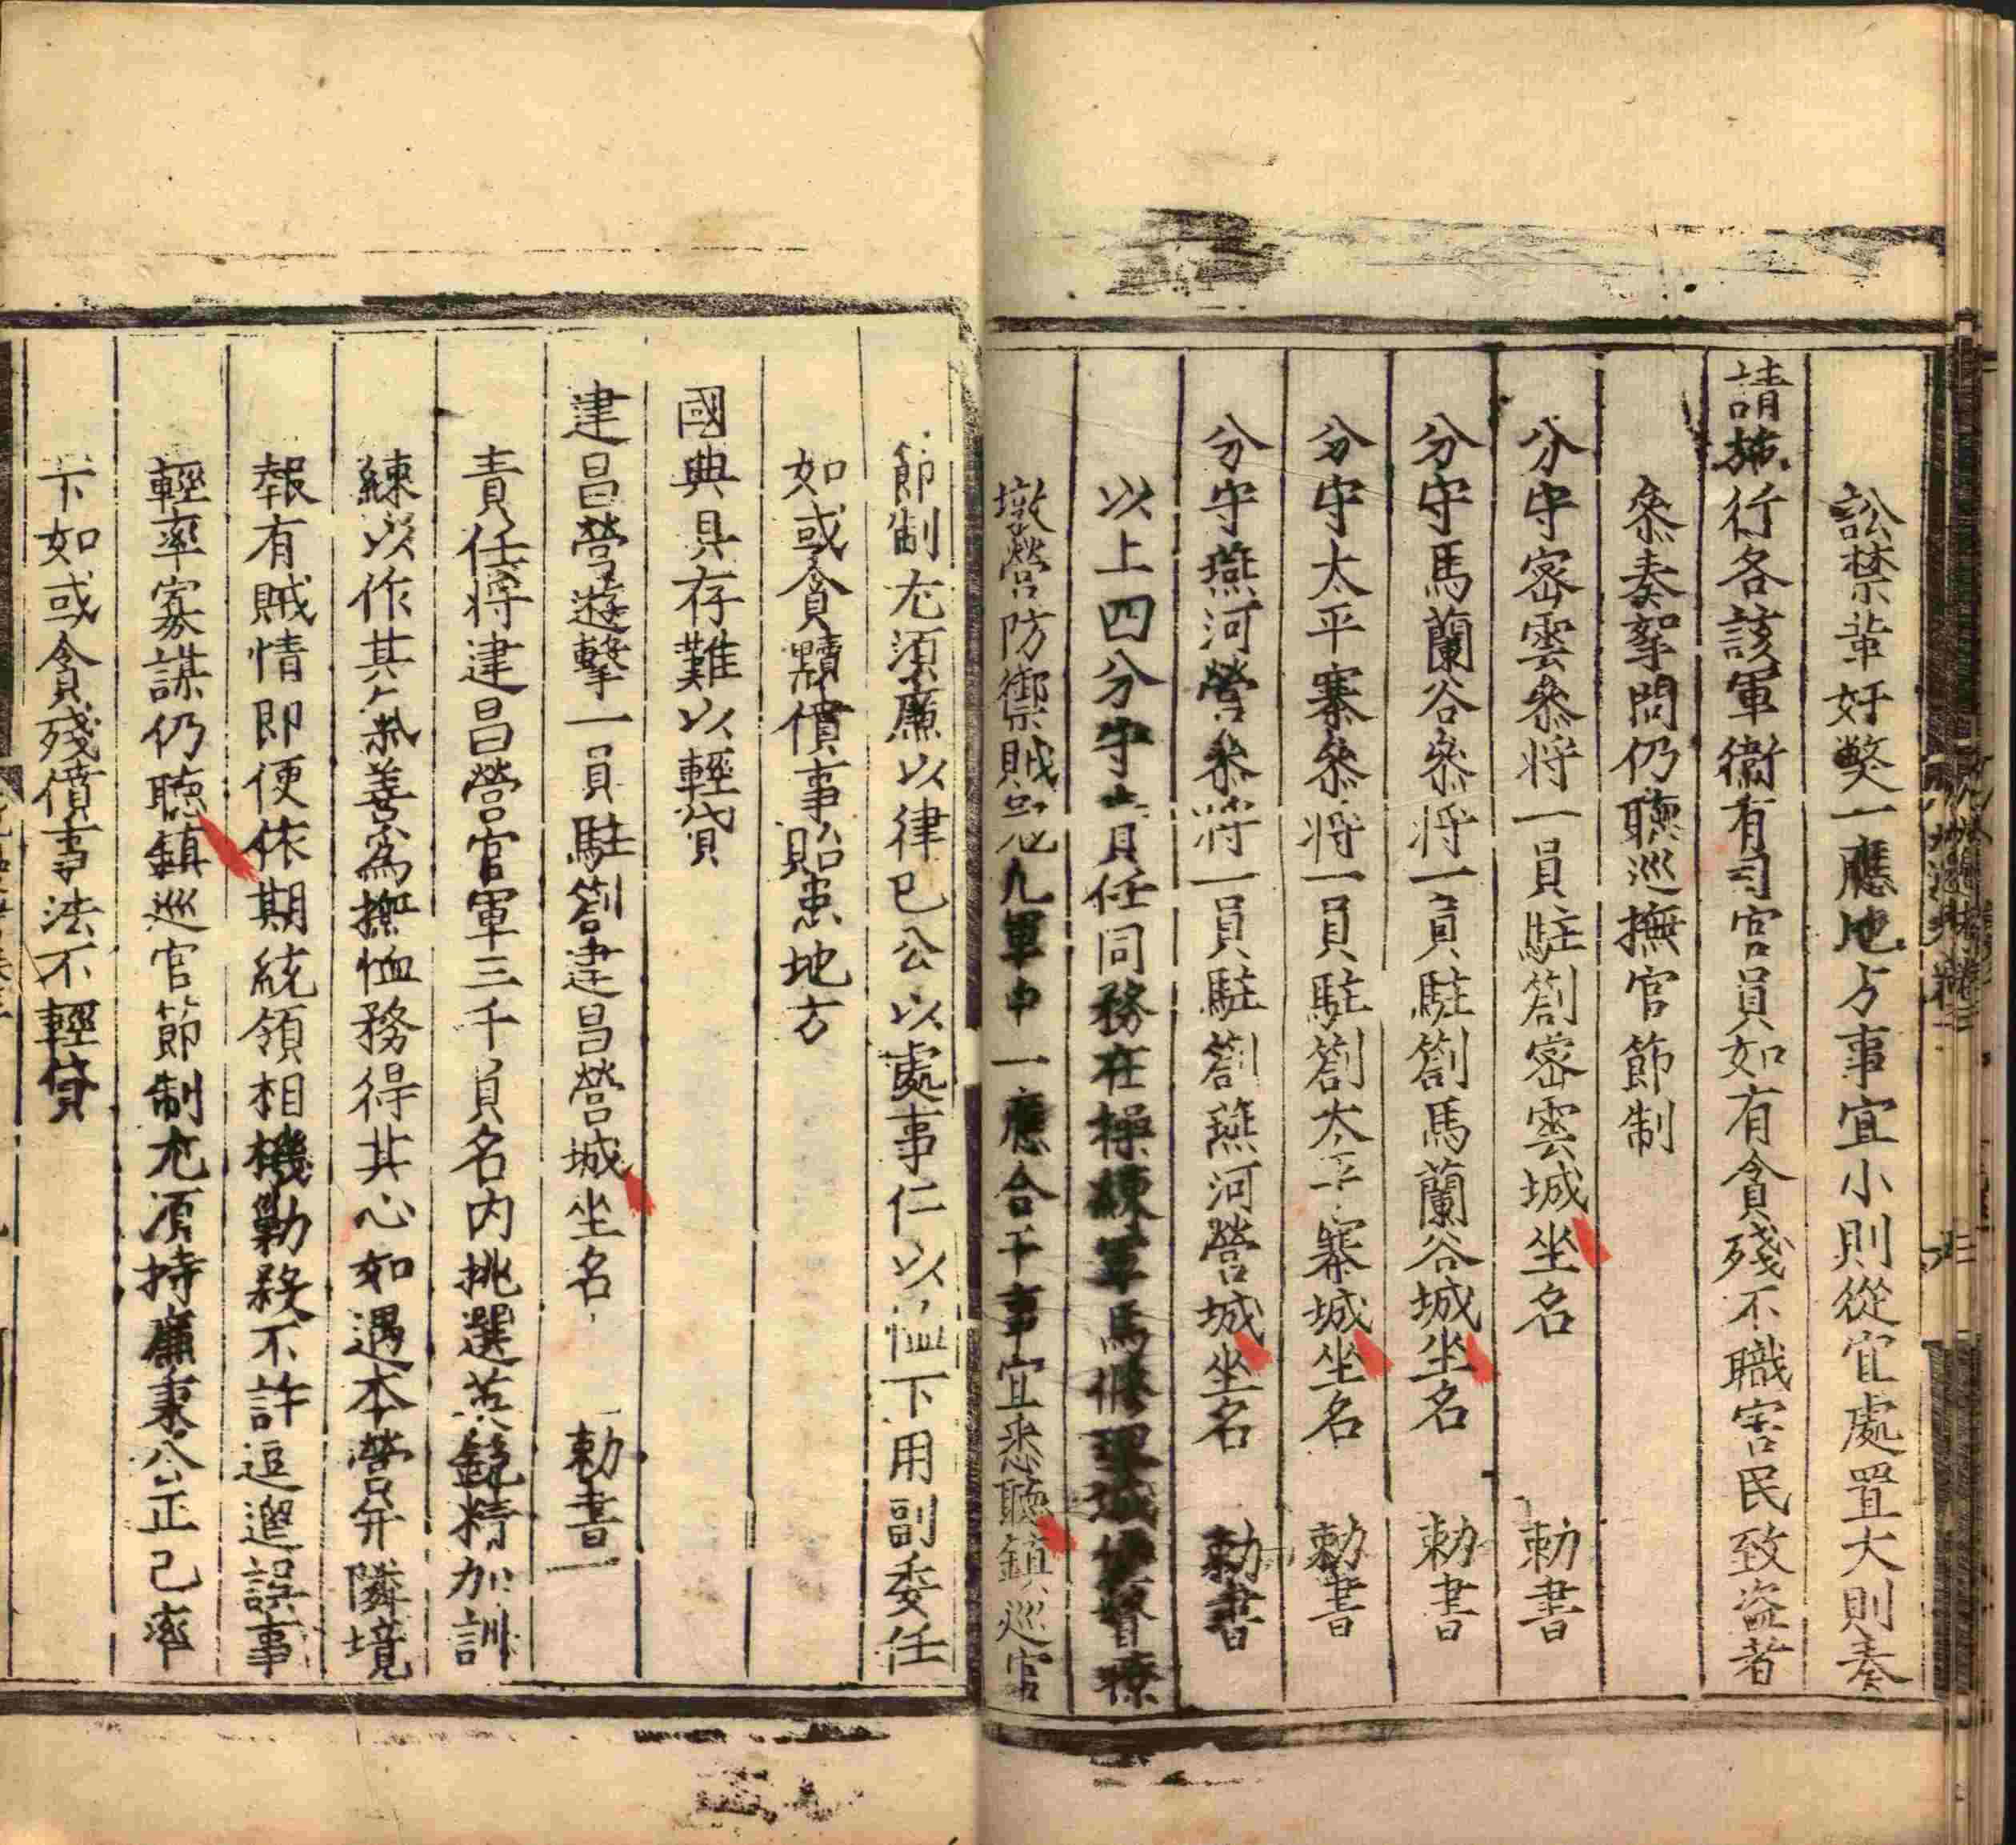 訟禁革奸獘一應地方事宜小則從宜處置大則奏
請施行各該軍衛有司官員如有貪殘不職害民致盜者
叅奏拏問仍聽巡撫官節制
分守密雲叅將一員駐劄密雲城坐名 勅書
分守馬蘭谷叅將一員駐劄馬蘭谷城坐名 勅書
分守太平寨叅將一員駐劄太平寨城坐名 勅書
分守燕河營叅將一員駐劄燕河營城坐名 勅書
以上四分守責任同務在操練軍馬修理城堡督瞭
墩營防禦賊冦凡軍中一應合干事宜悉聽鎮巡官
節制尤須廉以律己公以處事仁以恤下用副委任
如或貪黷僨事貽患地方
國典具存難以輕貸
建昌營遊擊一員駐劄建昌營城坐名 勅書一
責任將建昌營官軍三千員名內挑選英銳精加訓
練以作其氣善爲撫恤務得其心如遇本營并隣境
報有賊情即便依期統領相機勦殺不許逗遛誤事
輕率寡謀仍聽鎮巡官節制尤須持廉秉公正己率
下如或貪殘僨事法不輕貸